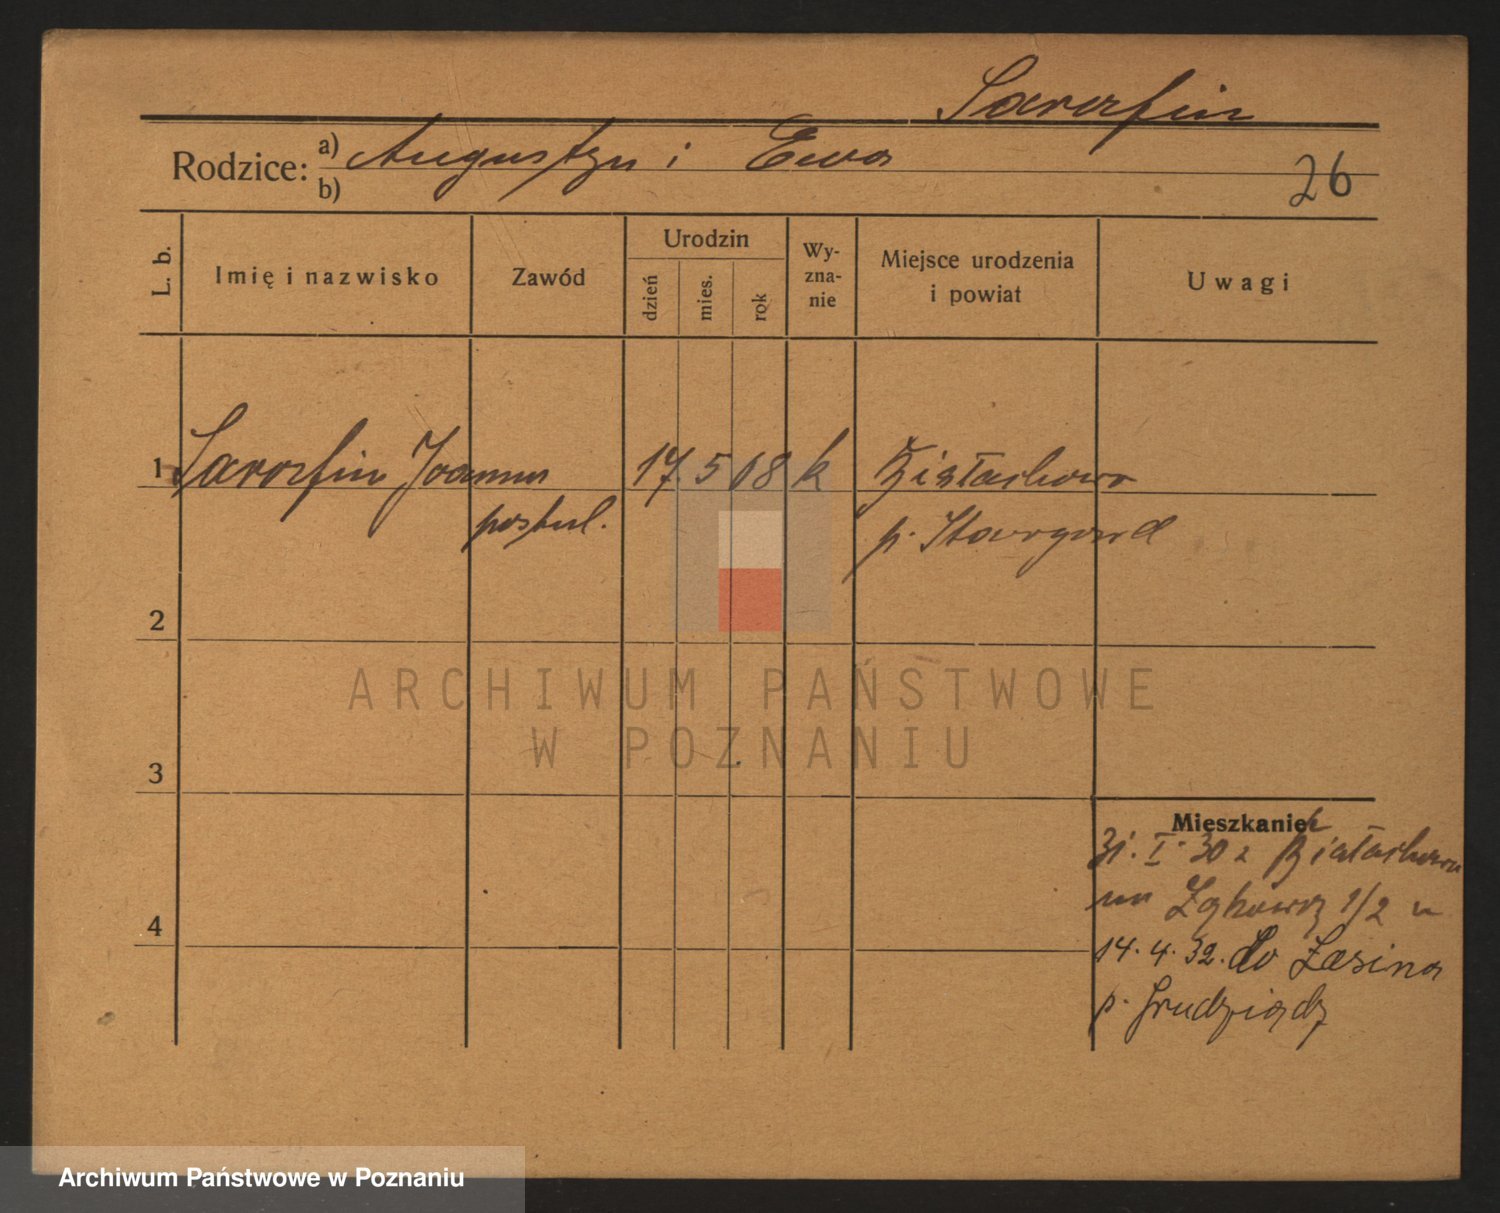 Sararfin
Rodzice: a) Augustyn i Ewa
b)
26
L. b.
Imię i nazwisko
Zawód
Urodzin
dzień
mies.
rok
Wy-
zna-
nie
Miejsce urodzenia
i powiat
Uwagi
1 Sararfin Joanna 17. 5 08 k Białachowo
postul. p. Starogard
2
3
4
Mieszkanie
31. I. 30 z Białachowa
na 1/2
14. 4. 32. do Łasina
p. Grudziądz
ARCHIWUM PAŃSTWOWE
W POZNANIU
Archiwum Państwowe w Poznaniu